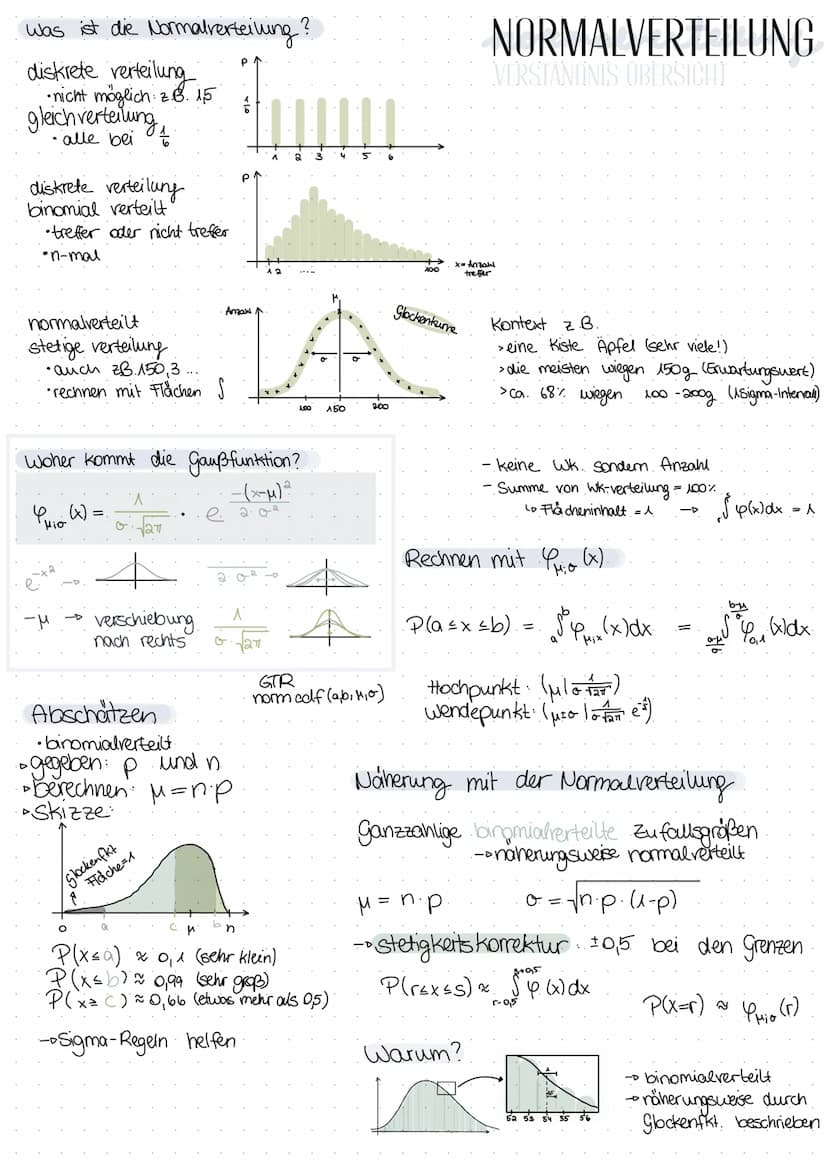 NORMALVERTEILUNG
VERSTÄNDNIS ÜBERSICHT
Was ist die Normalverteilung?
diskrete verteilung
• nicht möglich: z.B. 1,5
gleichverteilung
• alle bei 1/6
P
1/6
1 2 3 4 5 6
diskrete verteilung
binomial verteilt
• treffer oder nicht treffer
• n-mal
P
1 2 .... 100
x = Anzahl
treffer
normalverteilt
stetige verteilung
• auch zB. 150,3 ...
• rechnen mit Flächen ∫
Anzahl
μ
σ σ
Glockenkurve
100 150 200
Kontext z.B.
> eine Kiste Äpfel (sehr viele!)
> die meisten wiegen 150g (Erwartungswert)
> ca. 68% wiegen 100-200g (1Sigma-Intervall)
Woher kommt die Gaußfunktion?
φμ;σ(x) = 1/(σ·√2π) · e^(-(x-μ)²/(2·σ²))
e^(-x²) →
2·σ² →
-μ → verschiebung
nach rechts
1/(σ·√2π)
- keine Wk. sondern Anzahl
- Summe von Wk-verteilung = 100%
↳ Flächeninhalt = 1 → ∫φ(x)dx = 1
Rechnen mit φμ;σ(x)
P(a≤x≤b) = a∫b φμ;x(x)dx = (a-μ)/σ ∫ (b-μ)/σ φ0,1(x)dx
GTR
normcdf(a,b,μ,σ)
Hochpunkt: (μ | 1/(σ·√2π))
Wendepunkt: (μ±σ | 1/(σ·√2π) e^(-1/2))
Abschätzen
• binomialverteilt
▹ gegeben: p und n
▹ berechnen: μ = n·p
▹ Skizze:
Glockenfkt
Fläche=1
0 a c μ b n
P(x≤a) ≈ 0,1 (sehr klein)
P(x≤b) ≈ 0,99 (sehr groß)
P(x≥c) ≈ 0,66 (etwas mehr als 0,5)
→ Sigma-Regeln helfen
Näherung mit der Normalverteilung
Ganzzahlige binomialverteilte Zufallsgrößen
→ näherungsweise normalverteilt
μ = n·p σ = √n·p·(1-p)
→ stetigkeitskorrektur: ±0,5 bei den Grenzen
P(r≤x≤s) ≈ r-0,5∫s+0,5 φ(x)dx
P(X=r) ≈ φμ;σ(r)
Warum?
52 53 54 55 56
→ binomialverteilt
→ näherungsweise durch
Glockenfkt. beschrieben